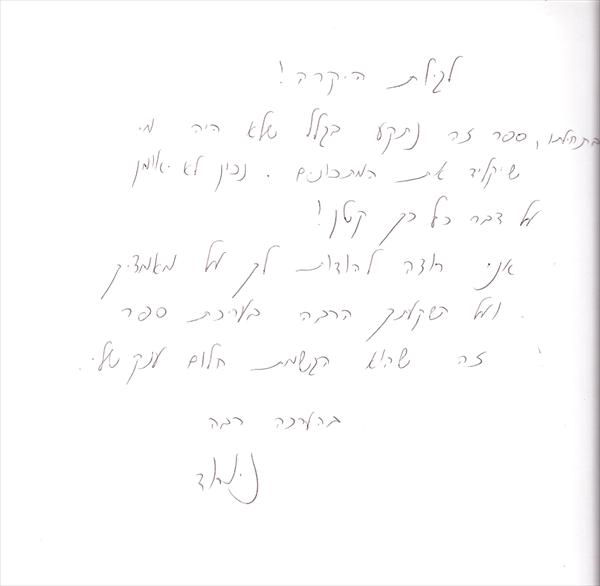 לגילת היקרה!
בתחילתו, ספר זה נתקע בגלל שלא היה מי
שיקליד את המתכונים. נכון לא יאומן
על דבר כל כך קטן!
אני רוצה להודות לך על מאמציך
ועל השקעתך הרבה בעריכת ספר
זה שהיא הגשמת חלום ענק שלי.
בהערכה רבה